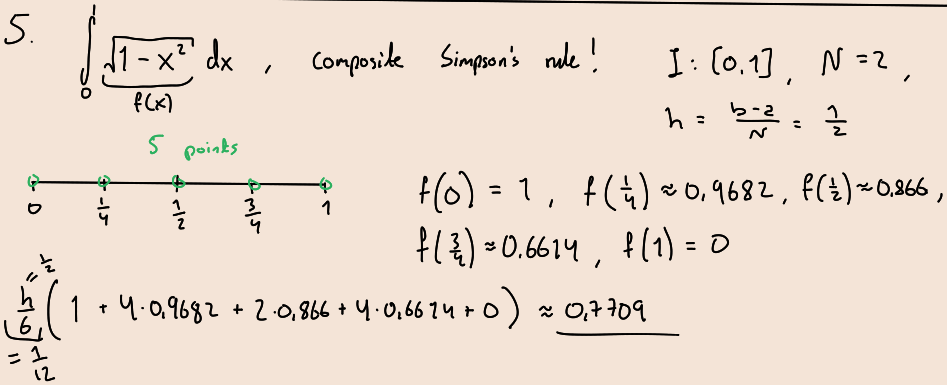 5. ∫₀¹ √(1 - x²) dx , composite Simpson's rule! I: [0,1], N = 2,
f(x)
h = b-a/N = 1/2
5 points
0 1/4 1/2 3/4 1
f(0) = 1, f(1/4) ≈ 0,9682, f(1/2) ≈ 0.866,
f(3/4) ≈ 0.6614, f(1) = 0
= 1/2
h/6 (1 + 4·0,9682 + 2·0,866 + 4·0,6614 + 0) ≈ 0,7709
= 1/12